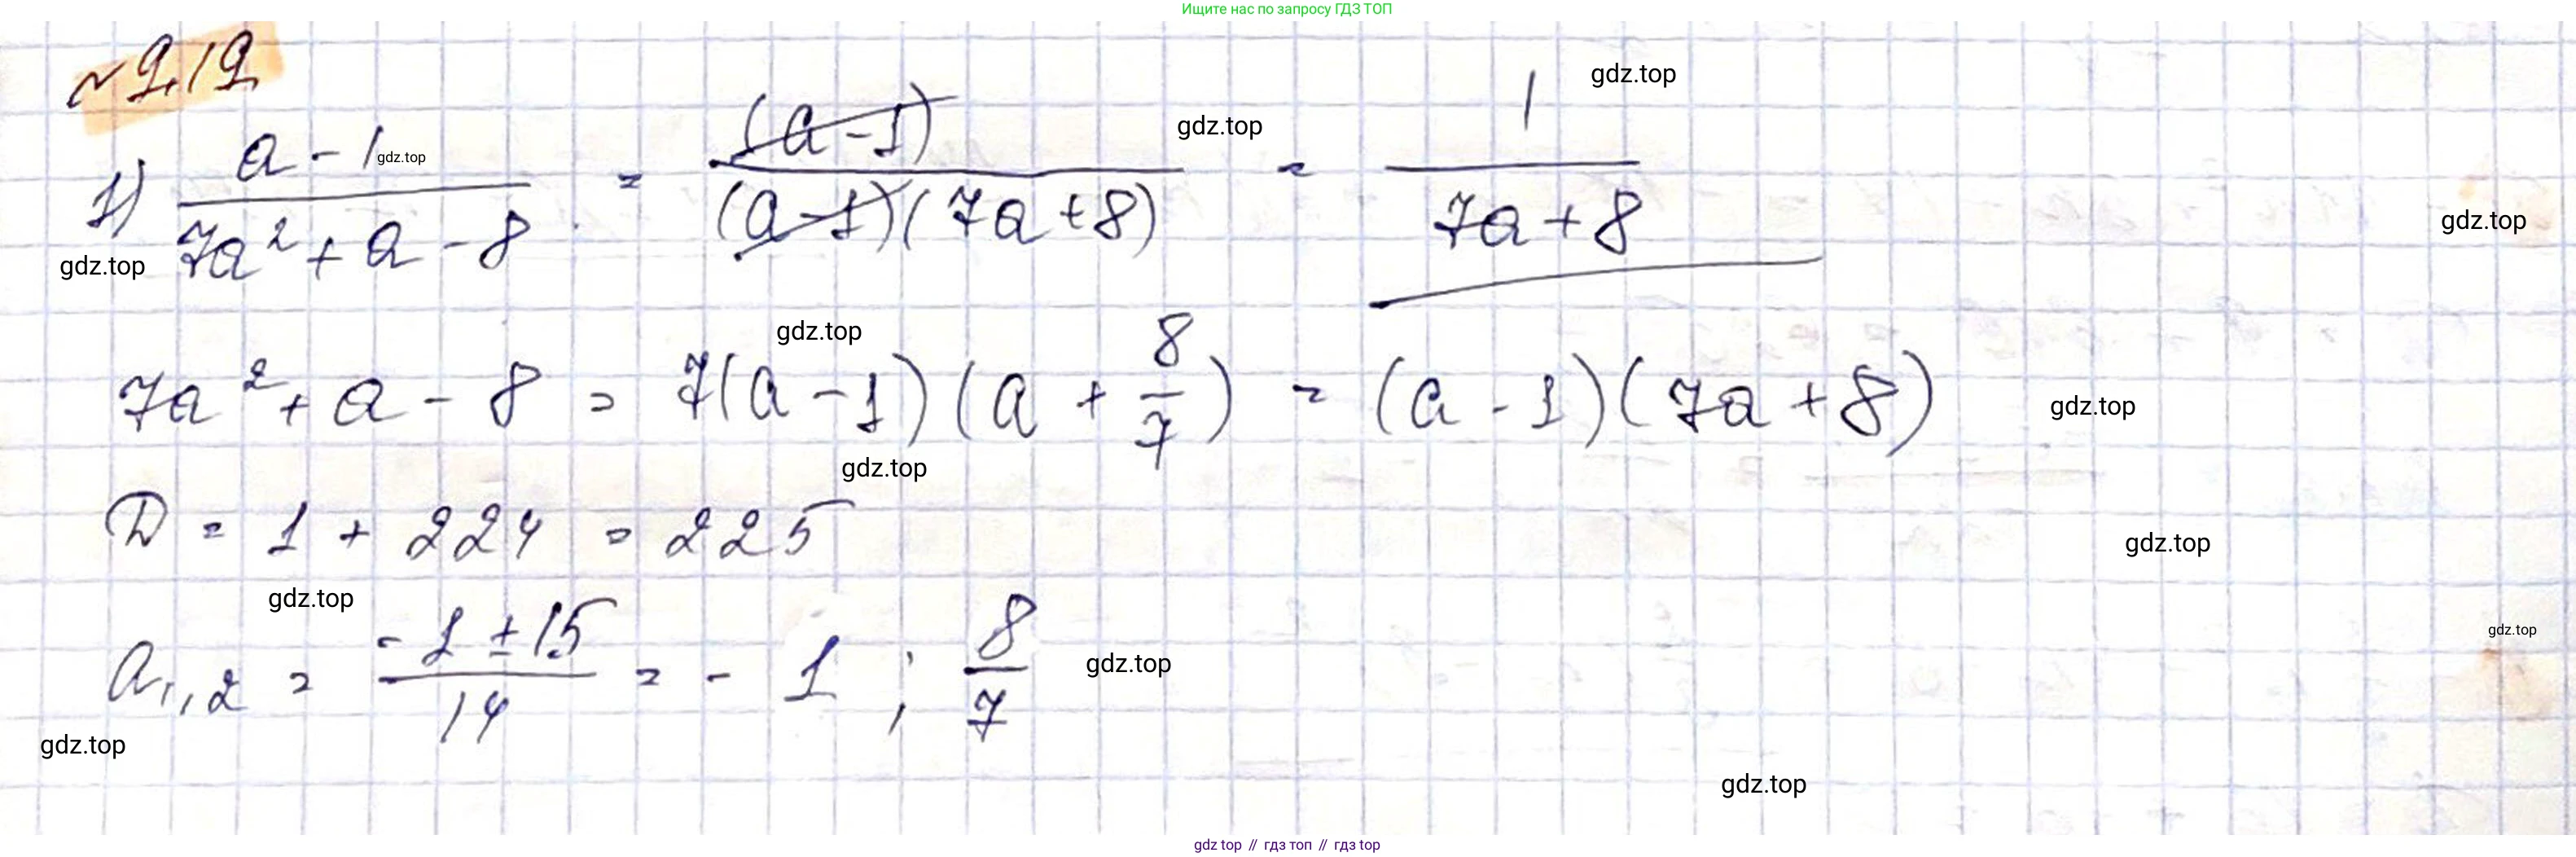 Ищите нас по запросу ГДЗ ТОП
№ 9.19
gdz.top
1) (a - 1)/(7a² + a - 8) = (a - 1)/((a - 1)(7a + 8)) = 1/(7a + 8)
gdz.top
gdz.top
gdz.top
gdz.top
gdz.top
7a² + a - 8 = 7(a - 1)(a + 8/7) = (a - 1)(7a + 8)
gdz.top
gdz.top
D = 1 + 224 = 225
gdz.top
gdz.top
a₁,₂ = (-1 ± 15)/14 = - 1 ; 8/7
gdz.top
gdz.top
gdz.top
gdz.top
gdz top // гдз топ // гдз top